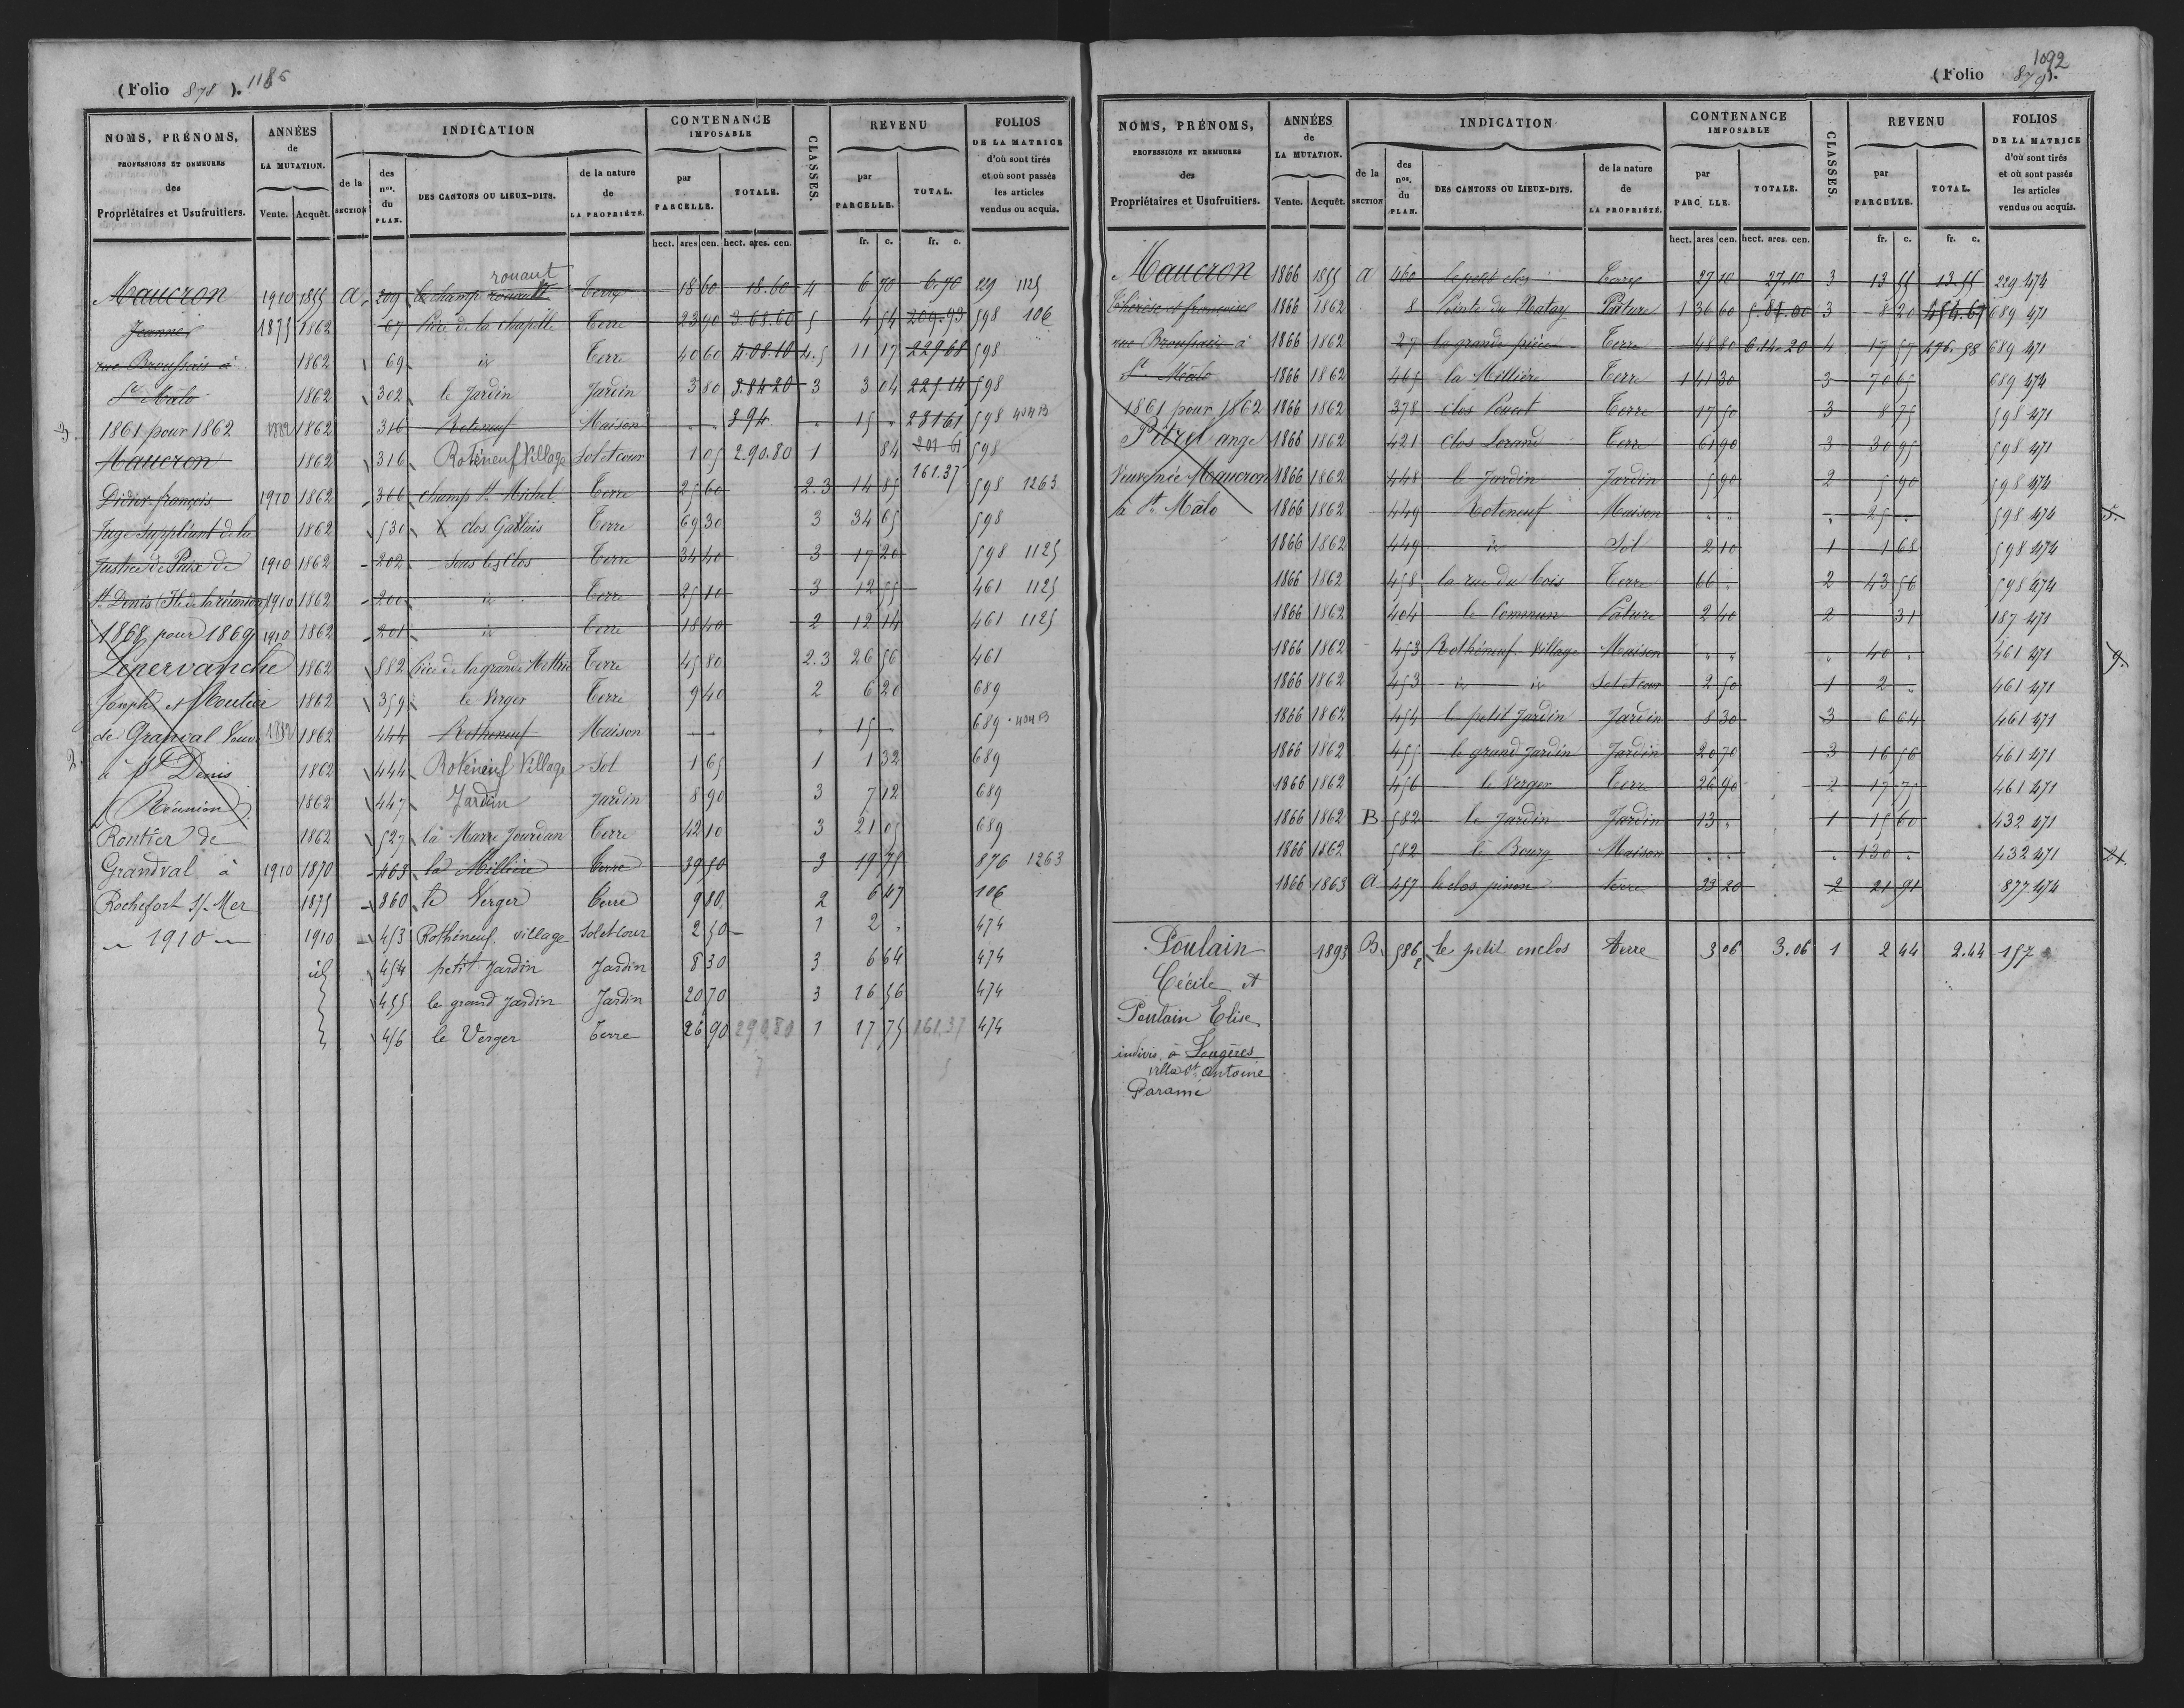 (Folio 878). 1186
NOMS, PRÉNOMS, PROFESSIONS ET DEMEURES des Propriétaires et Usufruitiers. ANNÉES de LA MUTATION. Vente. Acquêt. INDICATION de la SECTION des nos. du PLAN. DES CANTONS OU LIEUX-DITS. de la nature de LA PROPRIÉTÉ. CONTENANCE IMPOSABLE par PARCELLE. TOTALE. CLASSES. REVENU par PARCELLE. TOTAL. FOLIOS DE LA MATRICE d'où sont tirés et où sont passés les articles vendus ou acquis.
hect. ares cen. hect. ares. cen. fr. c. fr. c.
rouaut
Maucron 1910 1855 a 209 le champ rouault Terre 18 60 18.60 4 6 70 6.70 229 1125
Jeanne 1875 1862 67 Pièce de la chapelle Terre 23 90 3.68.60 5 4 54 209.93 598 106
rue Broussais à 1862 69 id Terre 40 60 4.08.10 4.5 11 17 229 68 598
St Malo 1862 302 le Jardin Jardin 3 80 3.84 20 3 3 04 225 14 598
3. 1861 pour 1862 1882 1862 316 Roteneuf Maison " " 394 " 15 " 281 61 598 404 B
Maucron 1862 316 Roténeuf Village Sol et cour 1 05 2.90.80 1 84 201 61 598
161.37
Didier françois 1910 1862 366 champ St Michel Terre 25 60 2.3 14 85 598 1263
Juge suppléant de la 1862 530 clos Gallais Terre 69 30 3 34 65 598
Justice de Paix de 1910 1862 202 Sous les Clos Terre 34 40 3 17 20 598 1125
St Denis (Ile de la réunion) 1910 1862 200 id Terre 25 10 3 12 55 461 1125
1868 pour 1869 1910 1862 201 id Terre 18 40 2 12 14 461 1125
Lepervanche 1862 882 Pièce de la grande Mettrie Terre 45 80 2.3 26 56 461
Joseph et Rontier 1862 359 le Verger Terre 9 40 2 6 20 689
de Granval Veuve 1882 1862 444 Rotheneuf Maison " " " 15 " 689 404 B
2. à St Denis 1862 444 Roténeuf Village Sol 1 65 1 1 32 689
(Réunion) 1862 447 Jardin Jardin 8 90 3 7 12 689
Rontier de 1862 527 la Marre Jourdan Terre 42 10 3 21 05 689
Grandval à 1910 1870 463 la Millière Terre 39 50 3 19 75 876 1263
Rochefort s/-Mer 1875 360 le Verger Terre 9 80 2 6 47 106
1910 1910 453 Rothéneuf village Sol et Cour 2 50 1 2 " 474
id 454 petit Jardin Jardin 8 30 3 6 64 474
455 le grand Jardin Jardin 20 70 3 16 56 474
456 le Verger Terre 26 90 290 80 1 17 75 161.37 474
1092
(Folio 879).
NOMS, PRÉNOMS, PROFESSIONS ET DEMEURES des Propriétaires et Usufruitiers. ANNÉES de LA MUTATION. Vente. Acquêt. INDICATION de la SECTION des nos. du PLAN. DES CANTONS OU LIEUX-DITS. de la nature de LA PROPRIÉTÉ. CONTENANCE IMPOSABLE par PARC LLE. TOTALE. CLASSES. REVENU par PARCELLE. TOTAL. FOLIOS DE LA MATRICE d'où sont tirés et où sont passés les articles vendus ou acquis.
hect. ares cen. hect. ares. cen. fr. c. fr. c.
Maucron 1866 1855 a 460 le petit clos Terre 27 10 27.10 3 13 55 13.55 229 474
Thérèse et francoise 1866 1862 8 Pointe du Natay Pâture 1 36 60 5.87.00 3 8 20 454.67 689 471
rue Broussais à 1866 1862 27 la grande pièce Terre 48 80 6.14.20 4 17 57 476.58 689 471
St Malo 1866 1862 465 la Millière Terre 1 41 30 3 70 65 689 474
1861 pour 1862 1866 1862 378 clos Poucet Terre 17 50 3 8 75 598 471
Pitrel ange 1866 1862 421 clos Lorand Terre 61 90 3 30 95 598 471
Veuve née Maucron 1866 1862 448 le Jardin Jardin 5 90 2 5 90 598 474
à St Malo 1866 1862 449 Roteneuf Maison " " " 25 " 598 474 5.
1866 1862 449 id Sol 2 10 1 1 68 598 474
1866 1862 458 la rue du bois Terre 66 " 2 43 56 598 474
1866 1862 404 le Commun Pâture 2 40 2 31 187 471
1866 1862 453 Rothéneuf Village Maison " " " 40 " 461 471 9.
1866 1862 453 id id Sol et cour 2 50 1 2 " 461 471
1866 1862 454 le petit Jardin Jardin 8 30 3 6 64 461 471
1866 1862 455 le grand Jardin Jardin 20 70 3 16 56 461 471
1866 1862 456 le Verger Terre 26 90 2 17 75 461 471
1866 1862 B 582 le Jardin Jardin 13 " 1 15 60 432 471
1866 1862 582 le Bourg Maison " " " 130 " 432 471 21.
1866 1863 a 457 le clos pinon terre 33 20 2 21 91 877 474
Poulain 1893 B 586 le petit enclos terre 3 06 3.06 1 2 44 2.44 157
Cécile et
Poulain Elise
indivis à Longères
villa St Antoine
Paramé